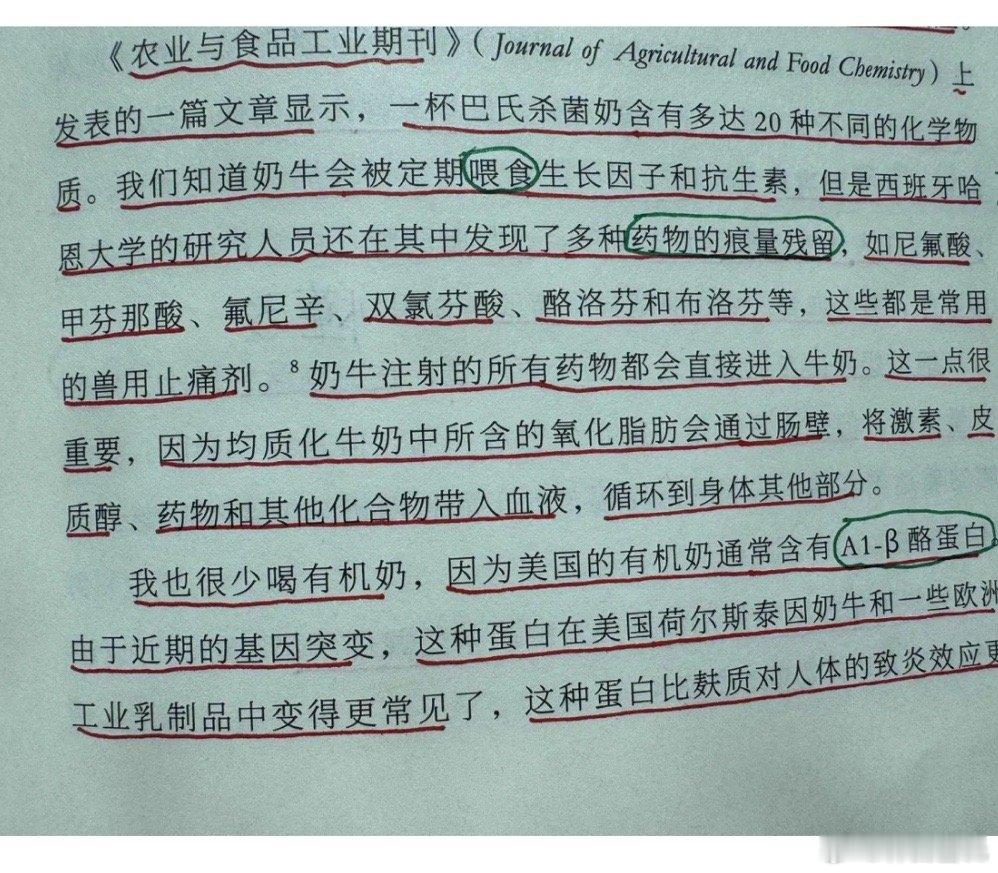 《农业与食品工业期刊》（Journal of Agricultural and Food Chemistry）上
发表的一篇文章显示，一杯巴氏杀菌奶含有多达 20 种不同的化学物
质。我们知道奶牛会被定期喂食生长因子和抗生素，但是西班牙哈
恩大学的研究人员还在其中发现了多种药物的痕量残留，如尼氟酸、
甲芬那酸、氟尼辛、双氯芬酸、酪洛芬和布洛芬等，这些都是常用
的兽用止痛剂。⁸ 奶牛注射的所有药物都会直接进入牛奶。这一点很
重要，因为均质化牛奶中所含的氧化脂肪会通过肠壁，将激素、皮
质醇、药物和其他化合物带入血液，循环到身体其他部分。
我也很少喝有机奶，因为美国的有机奶通常含有 A1-β 酪蛋白。
由于近期的基因突变，这种蛋白在美国荷尔斯泰因奶牛和一些欧洲
工业乳制品中变得更常见了，这种蛋白比麸质对人体的致炎效应更